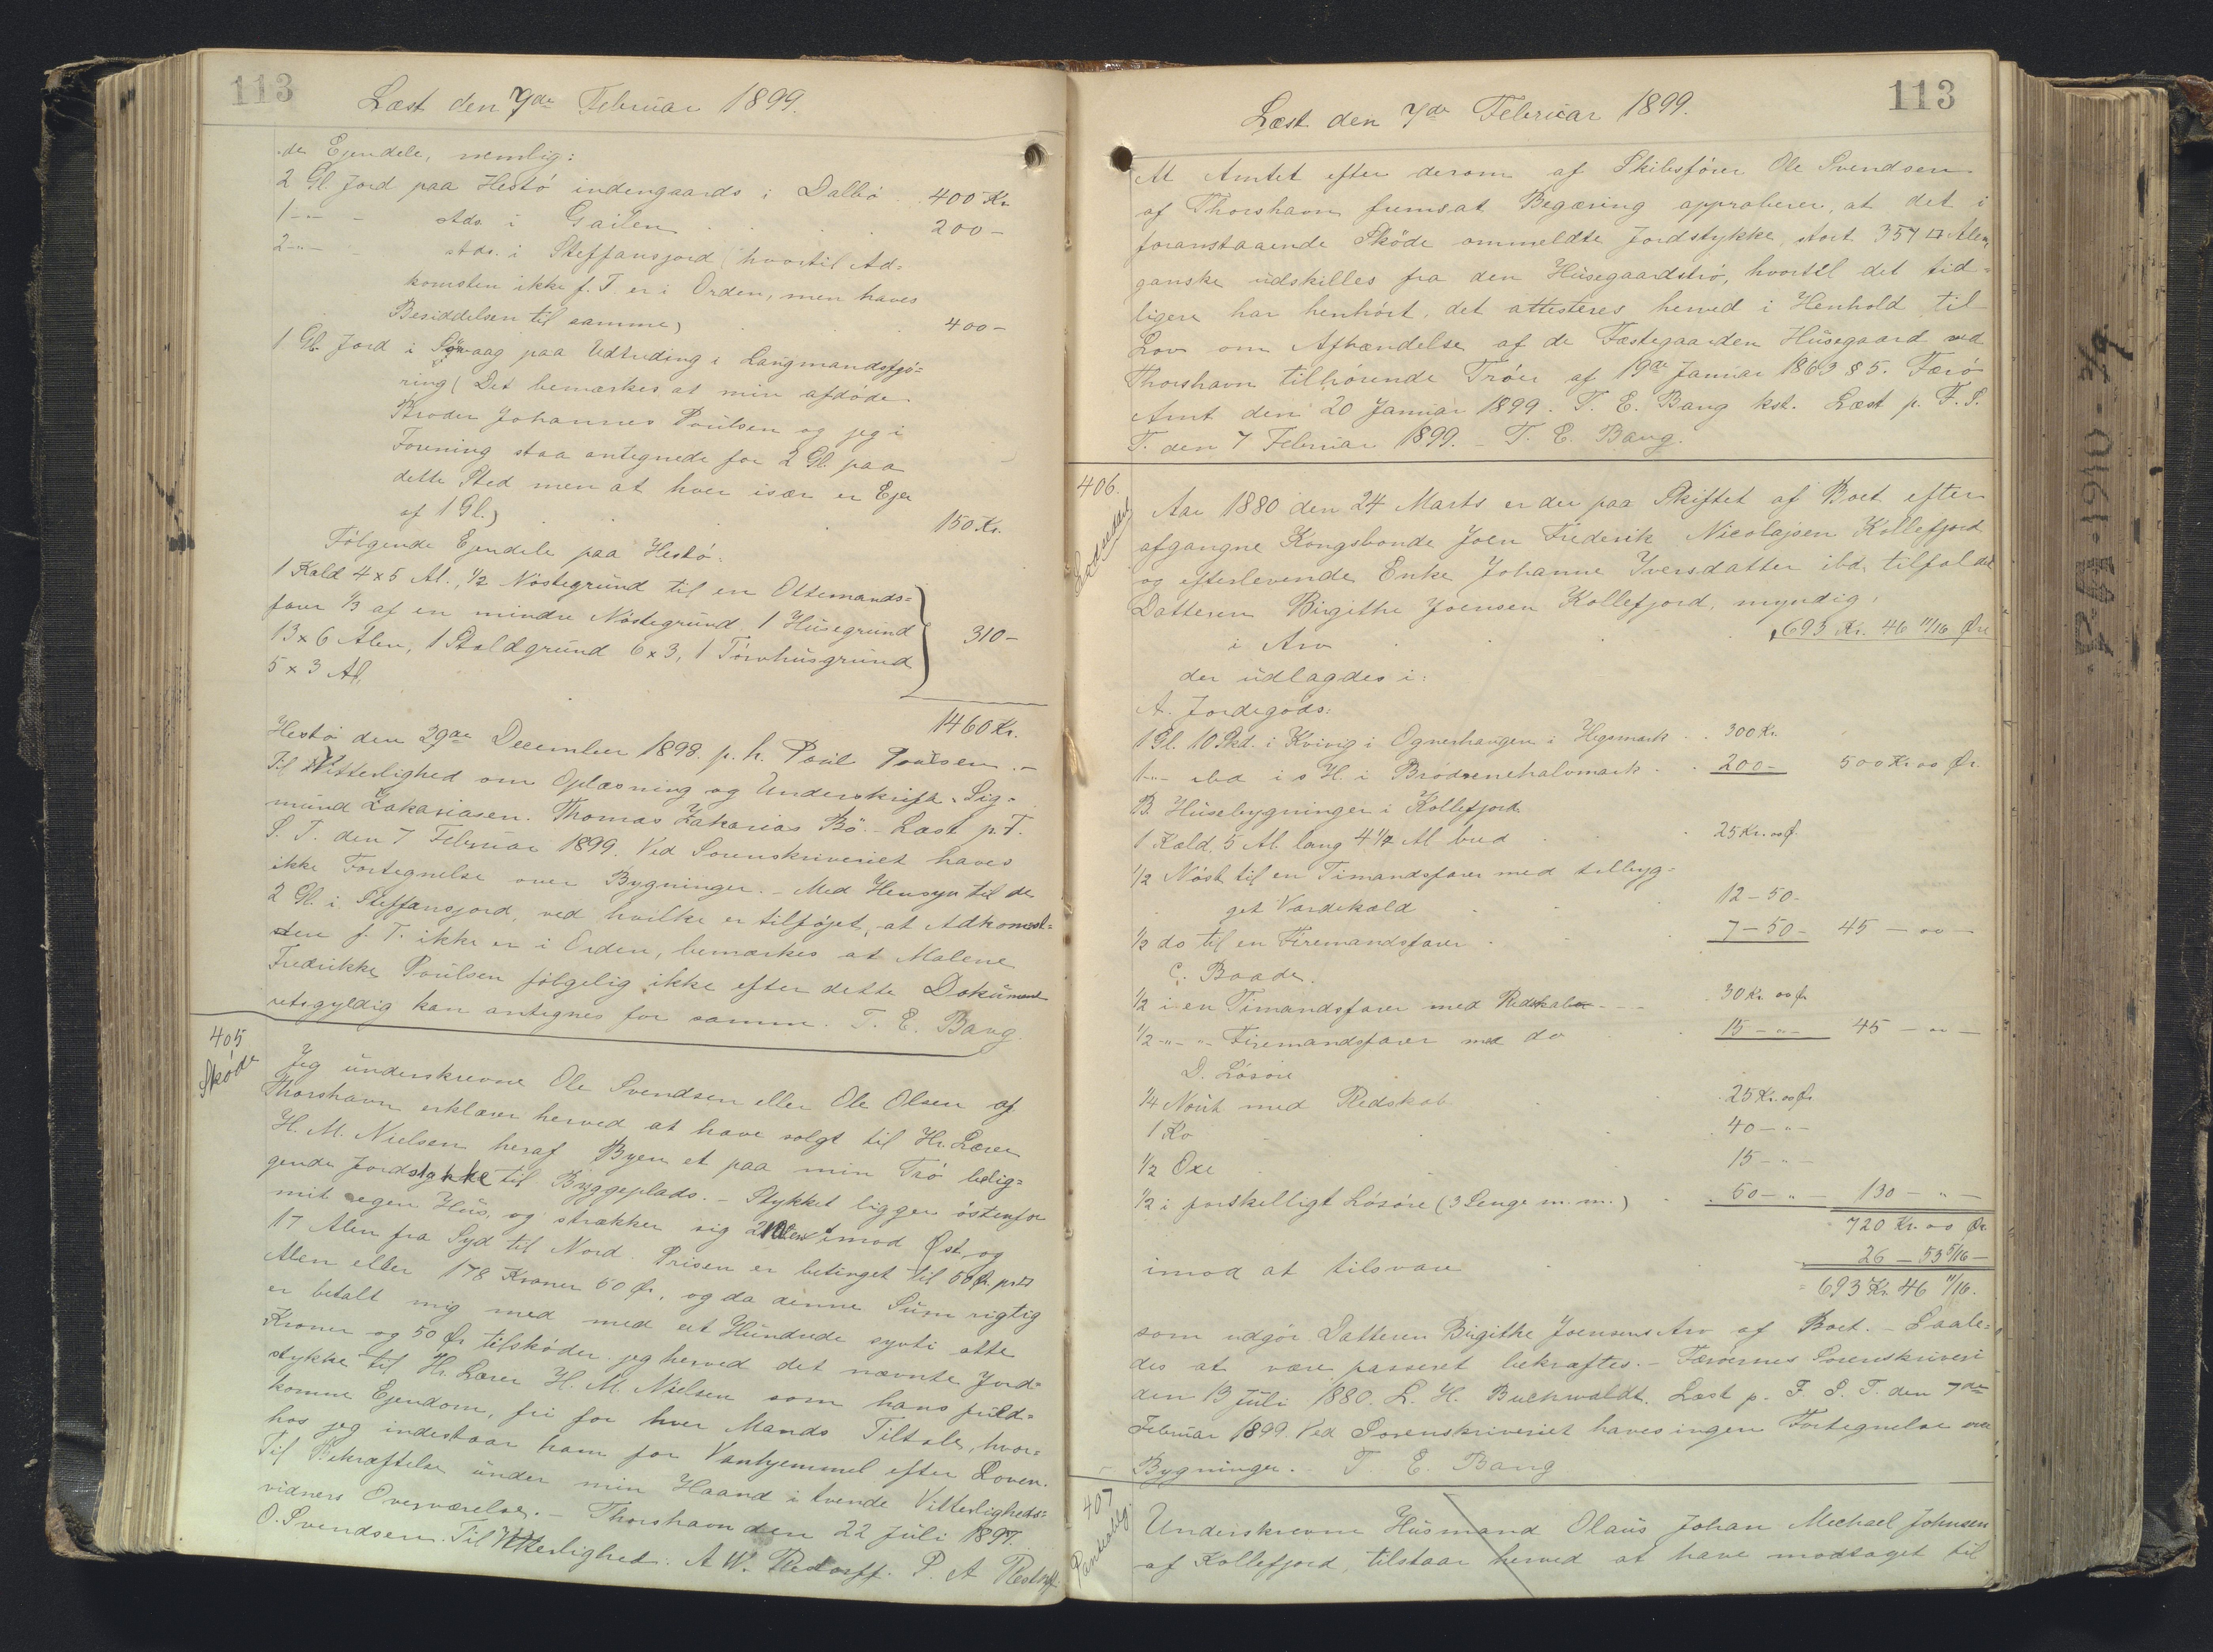 113
Læst den 7de Februar 1899.
de Ejendele, nemlig:
2 Gl. Jord paa Hestö indengaards i Dalbö . . 400 Kr
1 -"- - stds. i Gailen . . . . 200 -
2 -"- - stds. i Steffansjord (hvortil Ad=
komsten ikke f. T. er i Orden, men haves
Besiddelsen til samme) . . . 400 -
1 Gl. Jord i Sörvaag paa Udtriding i Langmandsfjö=
ring (Det bemærkes at min afdöde
Broder Johannes Poulsen og jeg i
Forening staa antegnede for 2 Gl. paa
dette Sted men at hver især er Ejer
af 1 Gl.) . . . . 150 Kr.
Fölgende Ejendele paa Hestö.
1 Kald 4 x 5 Al., 1/2 Nöstegrund til en Ottemands=
farer 1/3 af en mindre Nöstegrund, 1 Husegrund
13 x 6 Alen, 1 Staldgrund 6 x 3, 1 Törvhusgrund
5 x 3 Al. 310 -
1460 Kr.
Hestö den 29de December 1898. p. h. Poul Poulsen. -
Til Vitterlighed om Oplæsning og Underskrift. Sig=
mund Zakariasen. Thomas Zakarias Bö. - Læst p. F.
S. T. den 7 Februar 1899. Ved Sorenskriveriet haves
ikke Fortegnelse over Bygninger. - Med Hensyn til de
2 Gl. i Steffansjord, ved hvilke er tilföjet, at Adkomst=
sten f. T. ikke er i Orden, bemærkes at Malene
Fredrikke Poulsen fölgelig ikke efter dette Dokument
retsgyldig kan antegnes for samme. T. E. Bang.
405
Sköde
Jeg underskrevne Ole Svendsen eller Ole Olsen af
Thorshavn erklærer herved at have solgt til Hr. Lærer
H. M. Nielsen heraf Byen et paa min Trö belig=
gende Jordstykke til Byggeplads. - Stykket ligger östenfor
mit egen Hus, og strækker sig 21 Alen imod Øst og
17 Alen fra Syd til Nord. Prisen er betinget til 50 Ør. pr. □
Alen eller 178 Kroner 50 Ør., og da denne Sum rigtig
er betalt mig med med eet Hundrede syvti otte
Kroner og 50 Ør. tilsköder jeg herved det nævnte Jord=
stykke til Hr. Lærer H. M. Nielsen som hans fuld=
komne Ejendom, fri for hver Mands Tiltale, hvor=
hos jeg indestaar ham for Vanhjemmel efter Loven.
Til Bekræftelse under min Haand i tvende Vitterligheds=
vidners Overværelse. - Thorshavn den 22 Juli 1897.
O. Svendsen. Til Vitterlighed. A W. Restorff. P. A Restorff.
113
Læst den 7de Februar 1899.
At Amtet efter derom af Skibsförer Ole Svendsen
af Thorshavn fremsat Begæring approberer, at det i
foranstaaende Sköde ommeldte Jordstykke, stort 357 □ Alen,
ganske udskilles fra den Husegaardströ, hvortil det tid=
ligere har henhört, det attesteres herved i Henhold til
Lov om Afhændelse af de Fæstegaarden Husegaard ved
Thorshavn tilhörende Tröer af 19de Januar 1863 § 5. Færö
Amt den 20 Januar 1899. T. E. Bang kst. Læst p. F. S.
T. den 7 Februar 1899. - T. E. Bang.
406.
Aar 1880 den 24 Marts er der paa Skiftet af Boet efter
afgangne Kongsbonde Joen Frederik Nicolajsen Kollefjord
og efterlevende Enke Johanne Iversdatter ibd. tilfaldet
Datteren Birgithe Joensen Kollefjord, myndig,
i Arv . . . 693 Kr. 46 11/16 Øre
der udlagdes i:
A. Jordegods:
1 Gl. 10 Skd. i Kvivig i Ognerhaugen i Hegsmark . . 300 Kr.
1 -"- ibd i s H. i Brödrenehalvmark . . 200 - 500 Kr. oo Ør.
B. Husebygninger i Kollefjord.
1 Kald. 5 Al. lang 4 1/2 Al bred . . 25 Kr. oo Ø.
1/2 Nöst til en Timandsfarer med tilbyg=
get Vardekald . . 12 - 50 -
1/2 do til en Firemandsfarer . . 7 - 50 - 45 - oo -
C. Baade.
1/2 i en Timandsfarer med Redskaber - - - 30 Kr. oo Ør
1/2 -"- "- Firemandsfarer med do . 15 - " - 45 - oo -
D. Lösöre
1/4 Nout med Redskab . . 25 Kr. oo Ør
1 Ko . . 40 - " -
1/2 Oxe . . 15 - " -
1/2 i forskelligt Lösöre (3 Senge m. m.) . . 50 - " - 130 - " -
720 Kr. oo Ør.
imod at tilsvare . . 26 - 53 5/16 -
693 Kr. 46 11/16.
som udgör Datteren Birgithe Joensens Arv af Boet. - Saale=
des at være passeret bekræftes. - Færöernes Sorenskriveri
den 13 Juli 1880. L. H. Buchwaldt. Læst p. F. S. T. den 7de
Februar 1899. Ved Sorenskriveriet haves ingen Fortegnelse over
Bygninger. T. E. Bang
407
Underskrevne Husmand Olaus Johan Michael Johnsen
af Kollefjord, tilstaar herved at have modtaget til